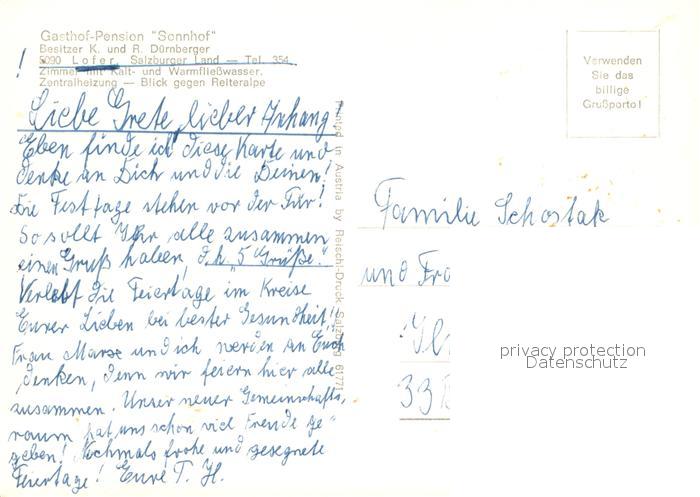 Gasthof-Pension "Sonnhof"
Besitzer K. und R. Dürnberger
! 5090 Lofer, Salzburger Land — Tel. 354
Zimmer mit Kalt- und Warmfließwasser.
Zentralheizung — Blick gegen Reiteralpe
Verwenden
Sie das
billige
Grußporto!
Liebe Grete, lieber Anhang!
Eben finde ich diese Karte und
denke an Dich und die Deinen!
Die Festtage stehen vor der Tür!
So sollt Ihr alle zusammen
einen Gruß haben, d.h. "5 Grüße."
Verlebt die Feiertage im Kreise
Eurer Lieben bei bester Gesundheit!!
Frau Marse und ich werden an Euch
denken, denn wir feiern hier alle
zusammen. Unser neuer Gemeinschafts-
raum hat uns schon viel Freude ge-
geben! Nochmals frohe und gesegnete
Feiertage! Eure T. H.
Printed in Austria by Reisch-Druck, Salzburg 61771
Familie Schostak
und Fra
33
privacy protection
Datenschutz